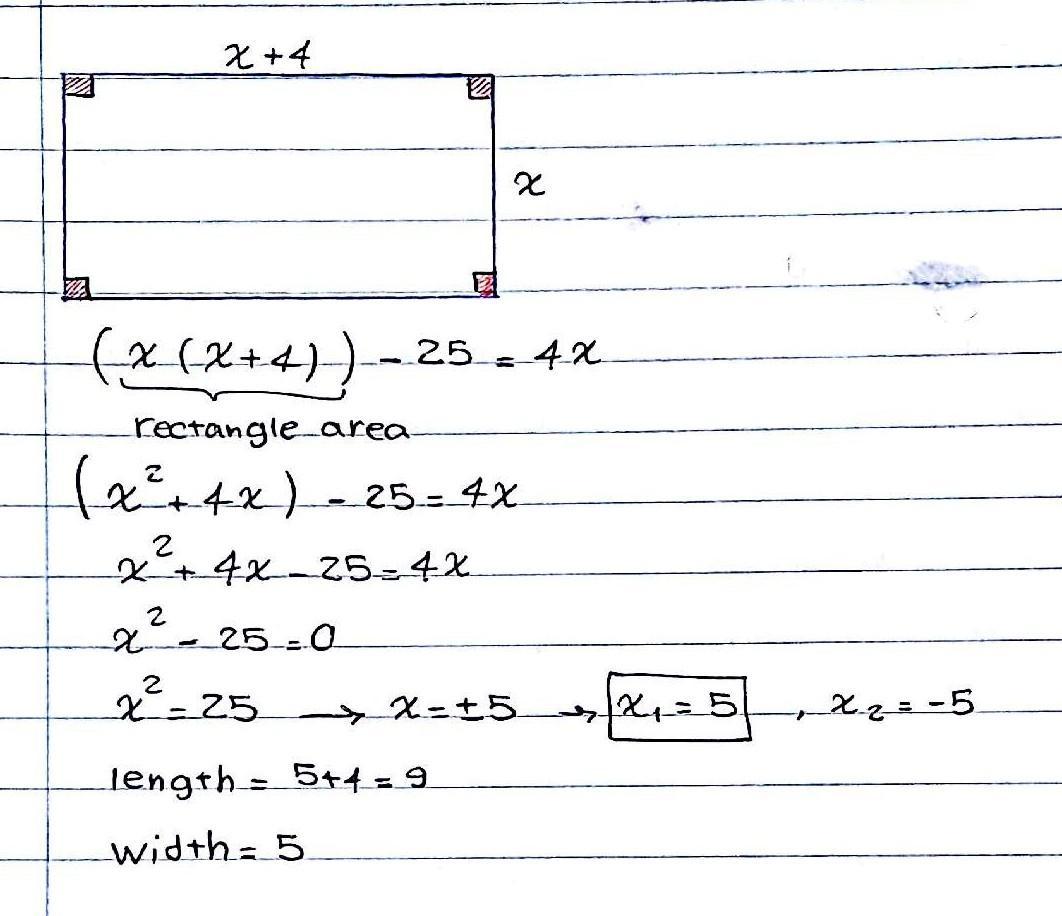 x+4
x
(x(x+4))-25=4x
rectangle area
(x²+4x)-25=4x
x²+4x-25=4x
x²-25=0
x²=25 → x=±5 → x₁=5, x₂=-5
length=5+4=9
width=5